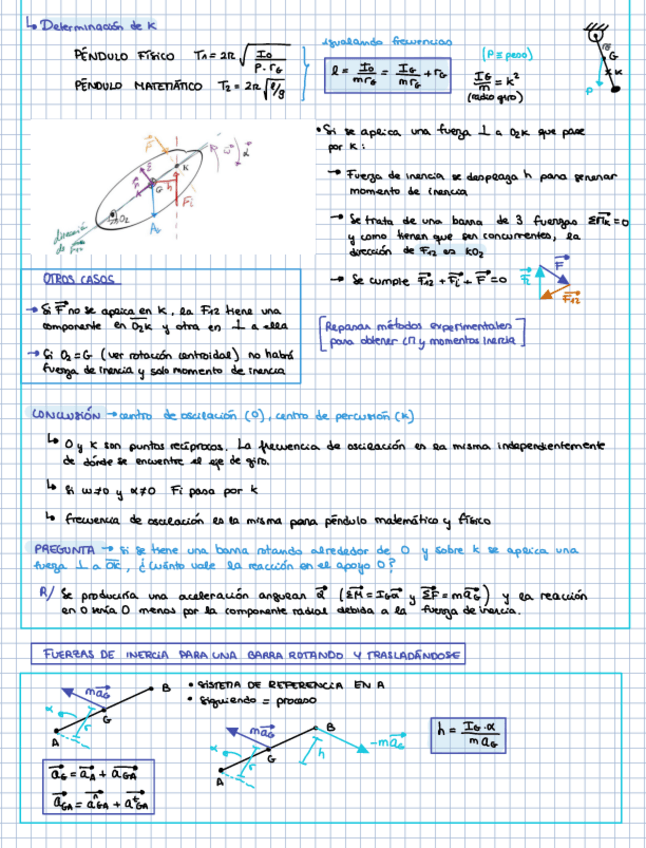 ↳ Determinación de K
PÉNDULO FÍSICO T₁ = 2π √(I₀ / P·r_G)
PÉNDULO MATEMÁTICO T₂ = 2π √(ℓ/g)
igualando frecuencias
ℓ = I₀ / m r_G = I_G / m r_G + r_G
(P ≡ peso)
I_G / m = k²
(radio giro)
r_G
G
K
P
• Si se aplica una fuerza ⊥ a O₂K que pase
por K:
→ Fuerza de inercia se desplaza h para generar
momento de inercia
→ Se trata de una barra de 3 fuerzas ΣM_K = 0
y como tienen que ser concurrentes, la
dirección de F₁₂ es KO₂
→ Se cumple F₁₂ + Fi + F = 0
F
Fi
F₁₂
F
K
G
h
Fi
O₂
ω
α
dirección
de F₁₂
OTROS CASOS
→ Si F no se aplica en K, la F₁₂ tiene una
componente en O₂K y otra en ⊥ a ella
→ Si O₂ = G (ver rotación centroidal) no habrá
fuerza de inercia y solo momento de inercia
[Repasar métodos experimentales
para obtener CM y momentos inercia]
CONCLUSIÓN → centro de oscilación (O), centro de percusión (K)
↳ O y K son puntos recíprocos. La frecuencia de oscilación es la misma independientemente
de dónde se encuentre el eje de giro.
↳ Si ω≠0 y α≠0 Fi pasa por K
↳ frecuencia de oscilación es la misma para péndulo matemático y físico
PREGUNTA → Si se tiene una barra rotando alrededor de O y sobre K se aplica una
fuerza ⊥ a OK, ¿Cuánto vale la reacción en el apoyo O?
R/ Se produciría una aceleración angular α (ΣM = I_G α y ΣF = m a_G) y la reacción
en O sería 0 menos por la componente radial debida a la fuerza de inercia.
FUERZAS DE INERCIA PARA UNA BARRA ROTANDO Y TRASLADÁNDOSE
• SISTEMA DE REFERENCIA EN A
• Siguiendo = proceso
m a_G
B
G
α
r
A
m a_G
B
-m a_G
G
h
α
r
A
h = I_G · α / m a_G
a_G = a_A + a_GA
a_GA = aⁿ_GA + aᵗ_GA